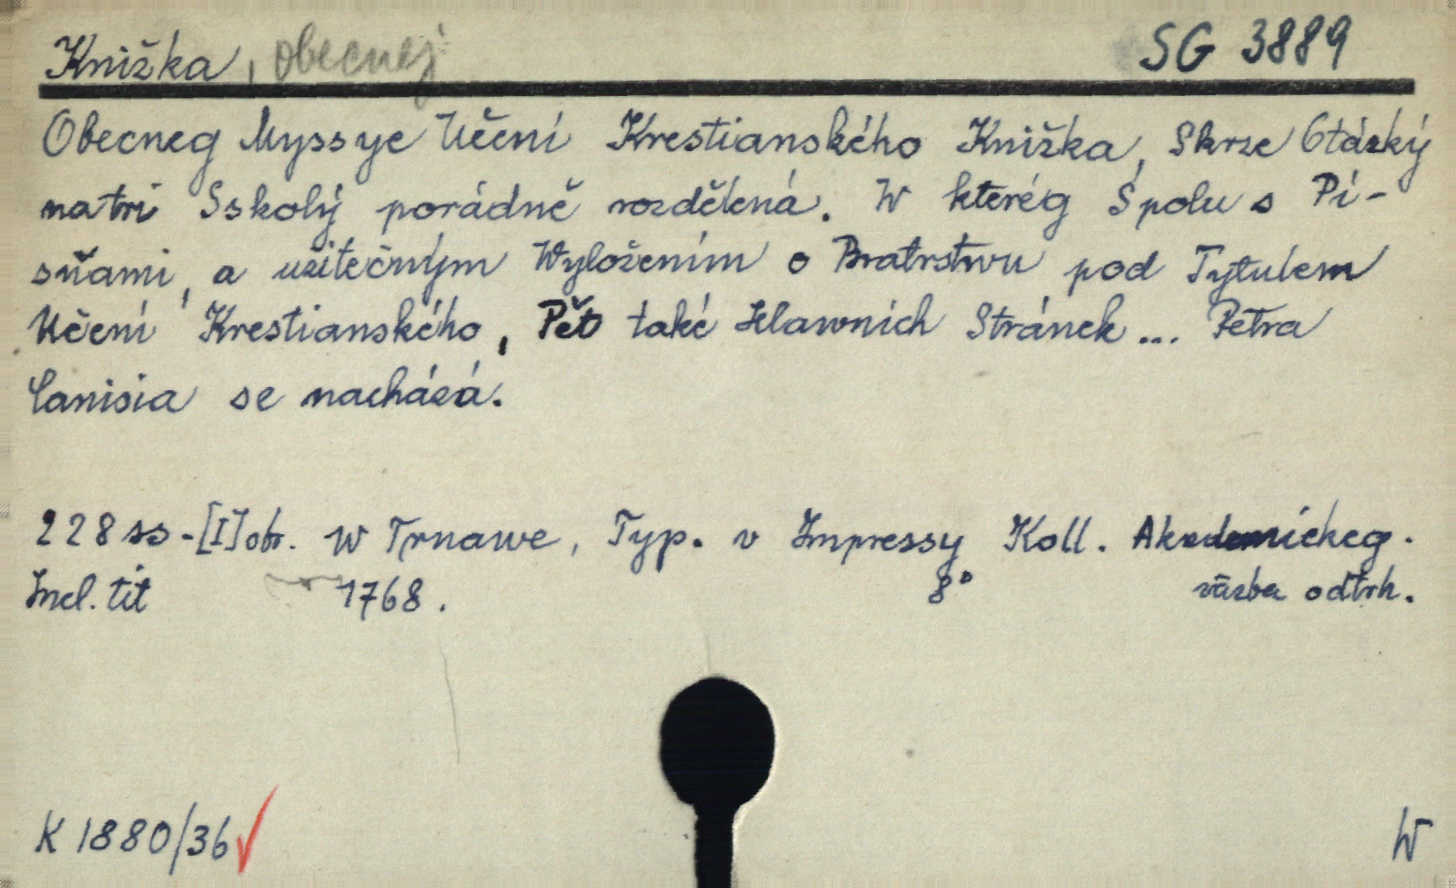 Knižka, obecnej SG 3889
Obecneg Myssye Učení Krestianského Knižka, Skrze Otázký
na tri Sskolý porádně rozdělená. W kterég Spolu s Pí-
sňami, a užitečným Wyložením o Bratrstwu pod Tytulem
Učení Krestianského, Pět také Hlawních Stránek... Petra
Canisia se nachází.
228 ss.-[I] obr. W Trnawe, Typ. v Impressy Koll. Akademickeg.
Incl. tit 1768. 8° väzba odtrh.
K 1880/36 W